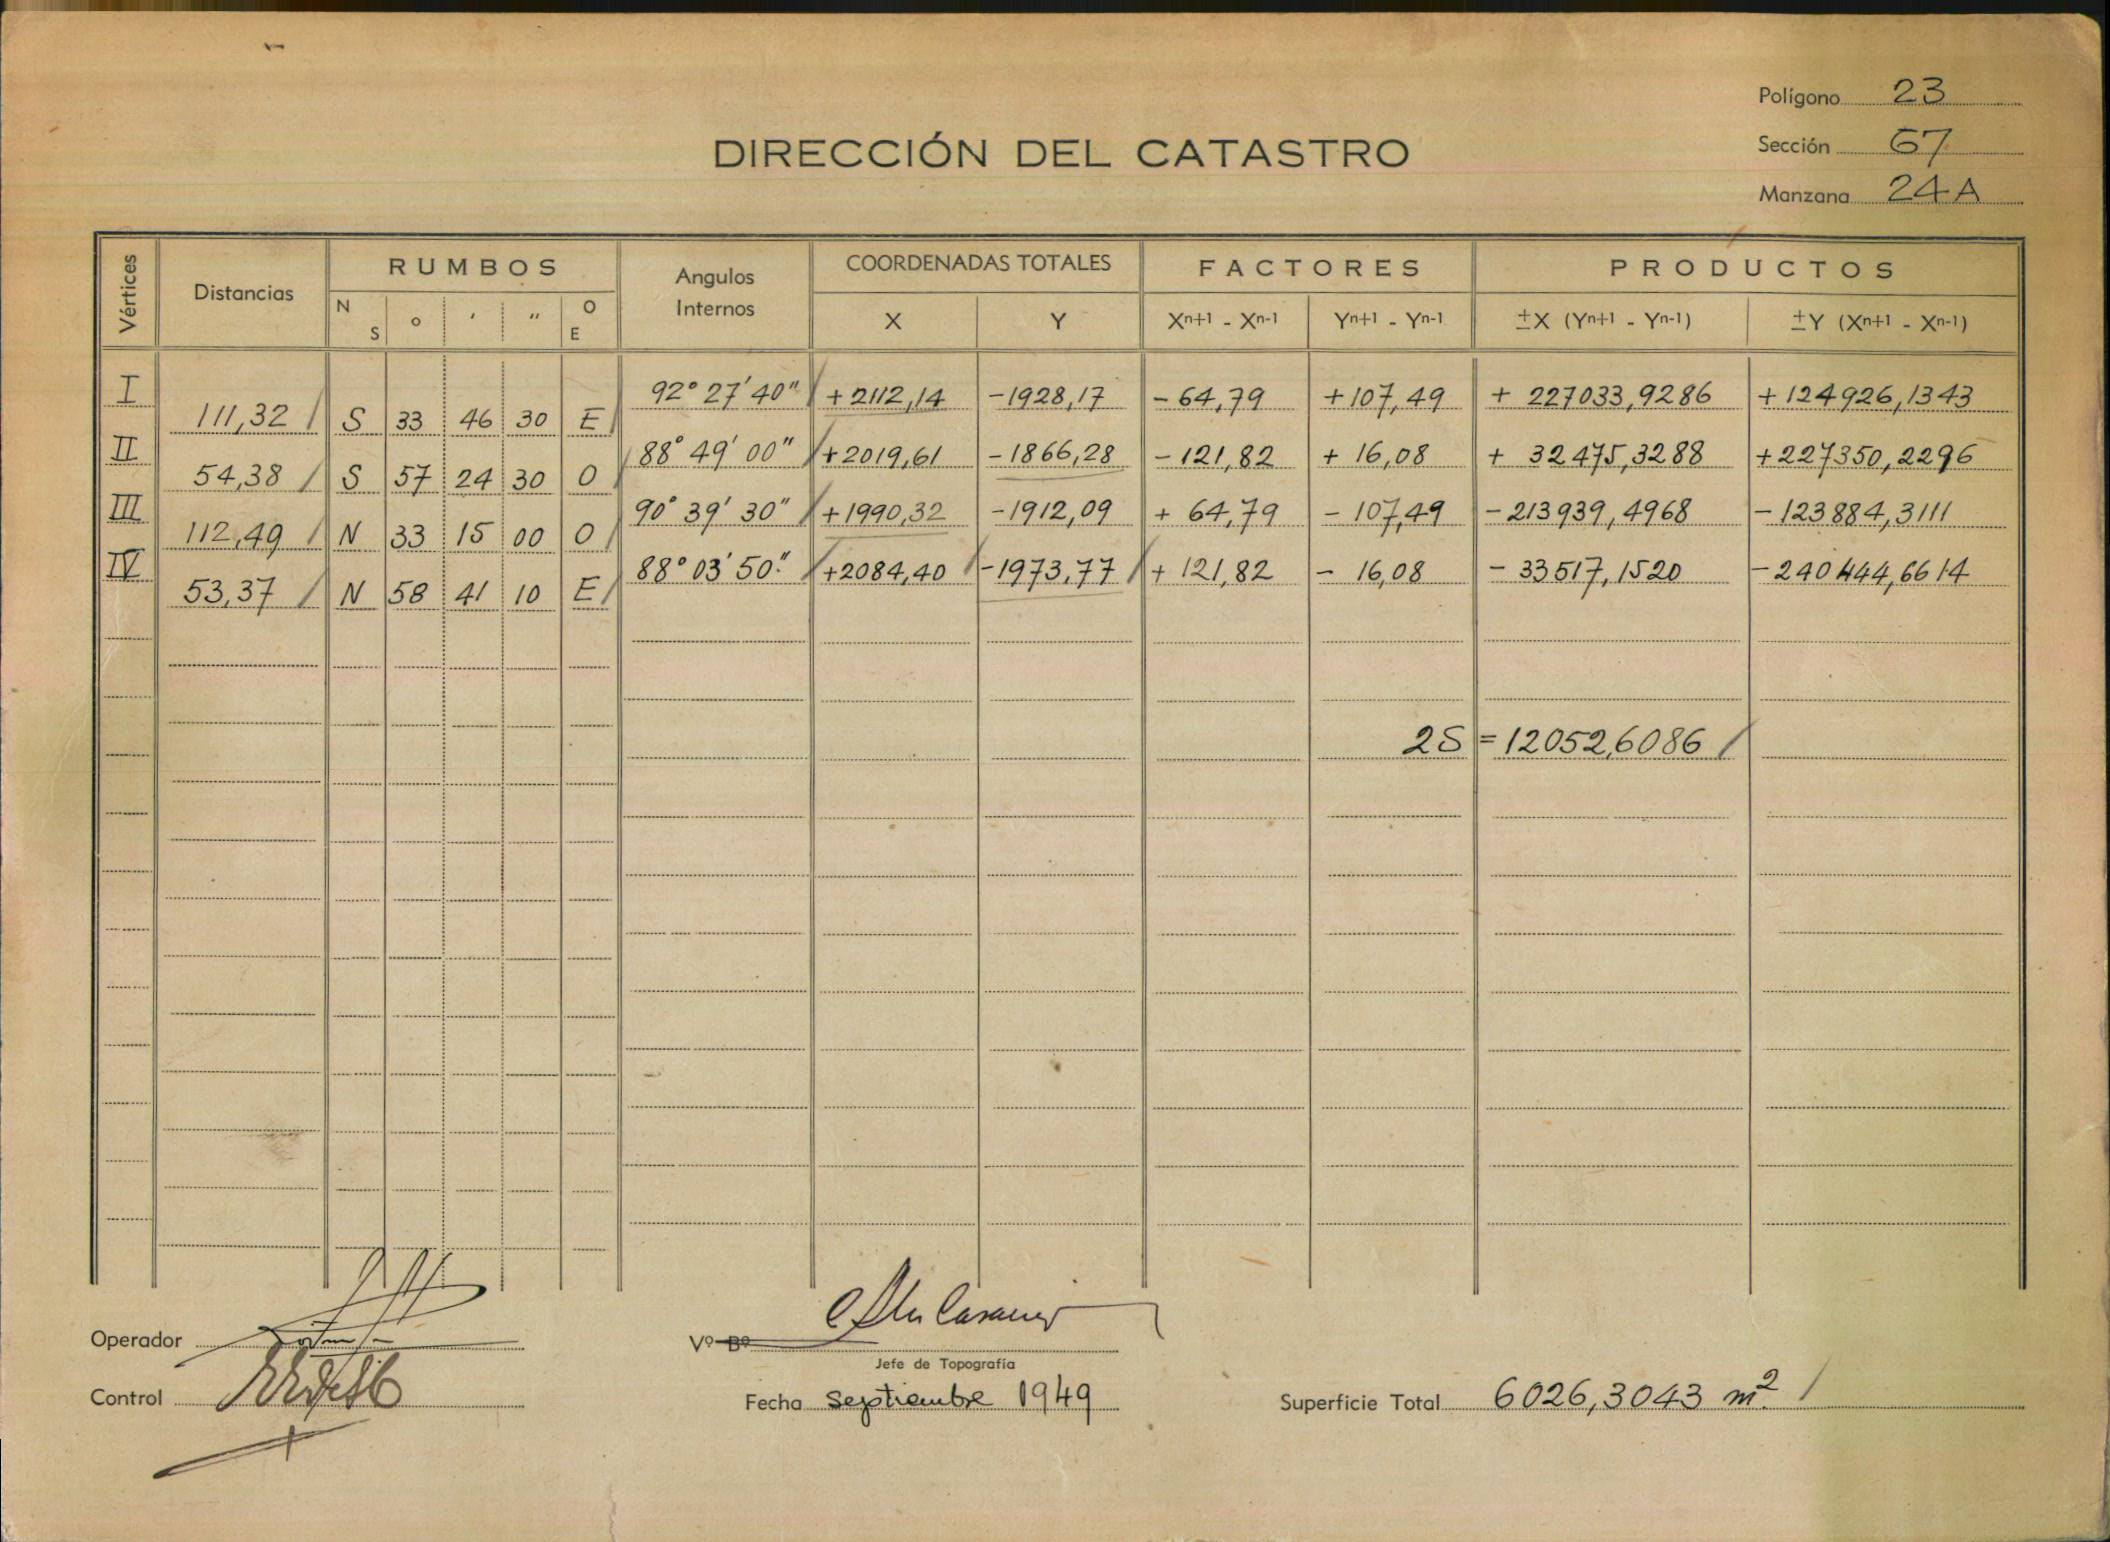 Polígono 23
DIRECCIÓN DEL CATASTRO
Sección 67
Manzana 24 A
Vértices Distancias RUMBOS Angulos Internos COORDENADAS TOTALES FACTORES PRODUCTOS
N S o ' " O E X Y Xn+1 - Xn-1 Yn+1 - Yn-1 ±X (Yn+1 - Yn-1) ±Y (Xn+1 - Xn-1)
I 92° 27' 40" +2112,14 -1928,17 -64,79 +107,49 + 227033,9286 +124926,1343
111,32 S 33 46 30 E
II 88° 49' 00" +2019,61 -1866,28 -121,82 + 16,08 + 32475,3288 +227350,2296
54,38 S 57 24 30 O
III 90° 39' 30" +1990,32 -1912,09 + 64,79 - 107,49 -213939,4968 -123884,3111
112,49 N 33 15 00 O
IV 88° 03' 50" +2084,40 -1973,77 + 121,82 - 16,08 - 33517,1520 -240444,6614
53,37 N 58 41 10 E
2S = 12052,6086
Operador
Vº Bº
Jefe de Topografía
Control
Fecha septiembre 1949
Superficie Total 6026,3043 m²